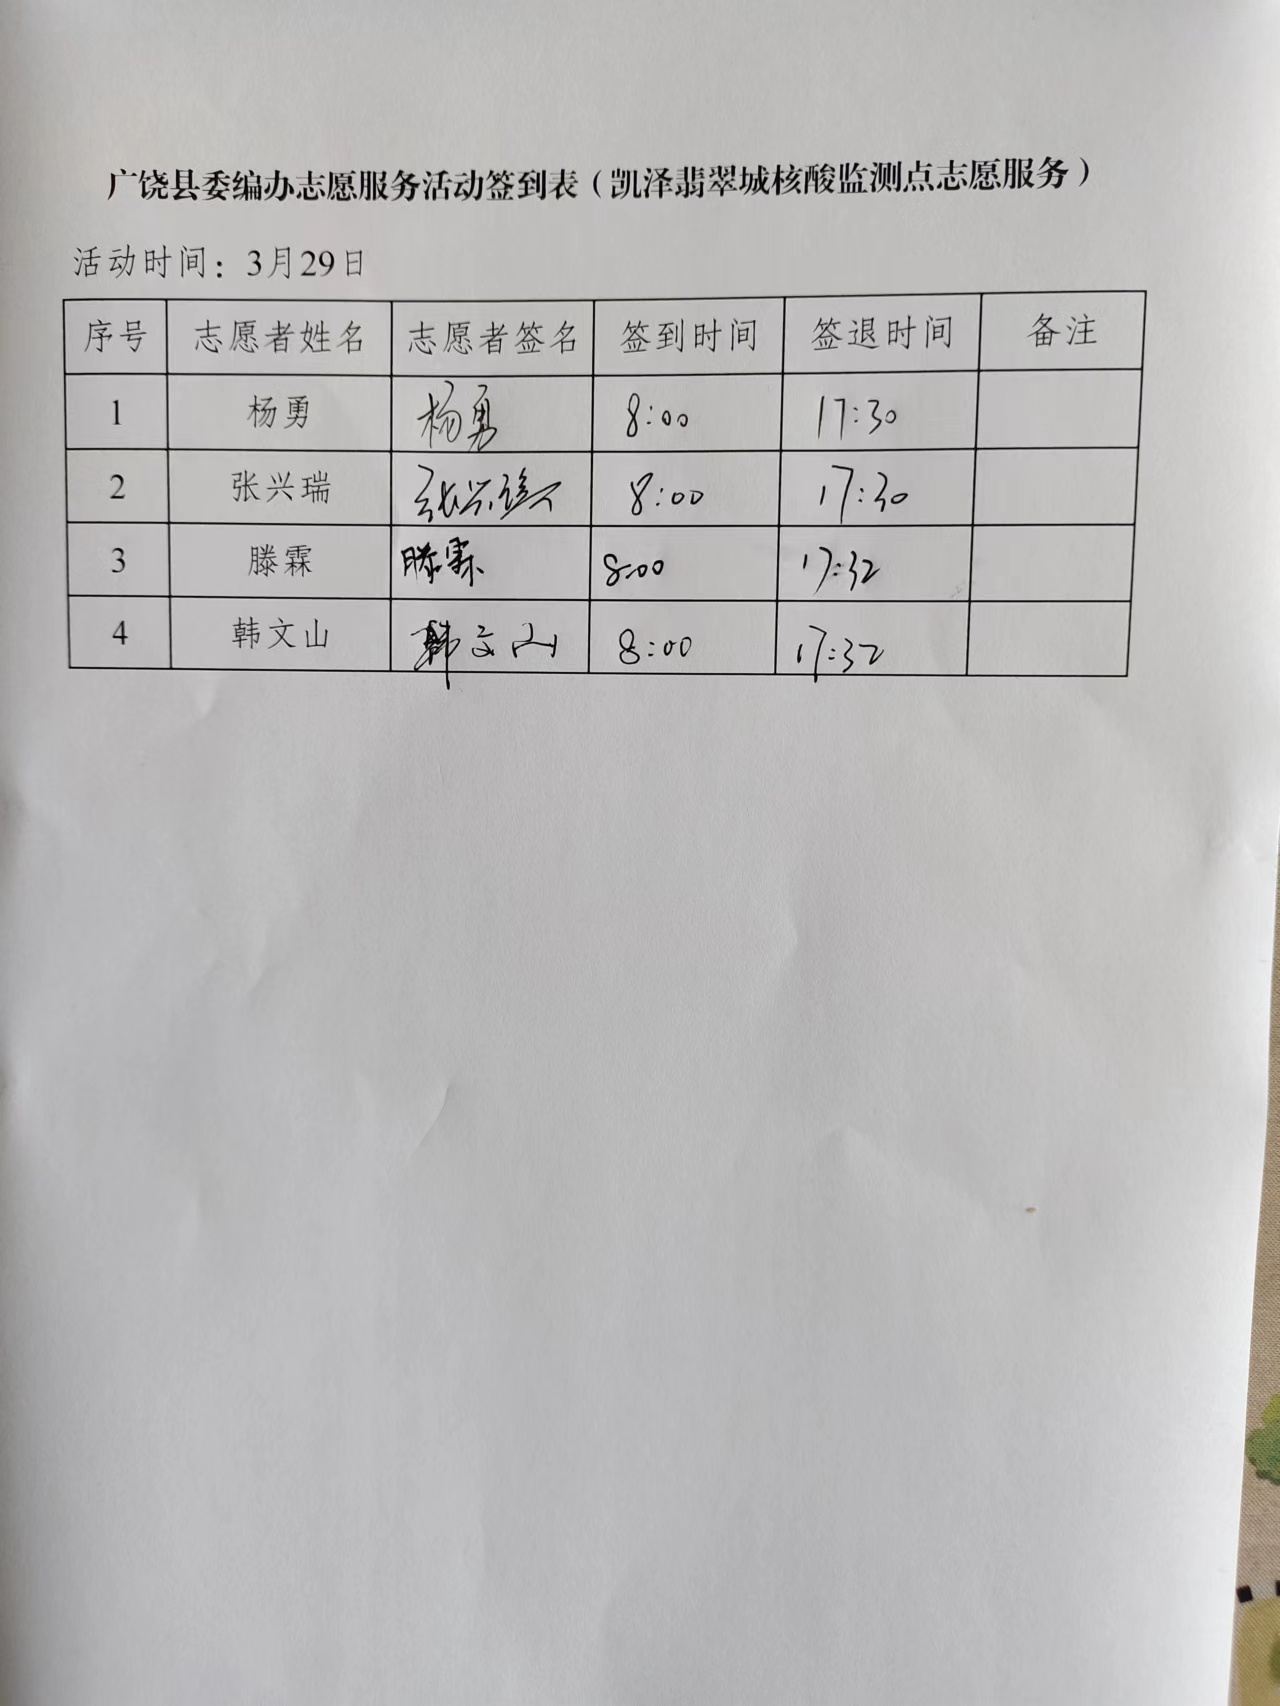 广饶县委编办志愿服务活动签到表（凯泽翡翠城核酸监测点志愿服务）
活动时间：3月29日
序号 志愿者姓名 志愿者签名 签到时间 签退时间 备注
1 杨勇 杨勇 8:00 17:30
2 张兴瑞 张兴瑞 8:00 17:30
3 滕霖 滕霖 8:00 17:32
4 韩文山 韩文山 8:00 17:32